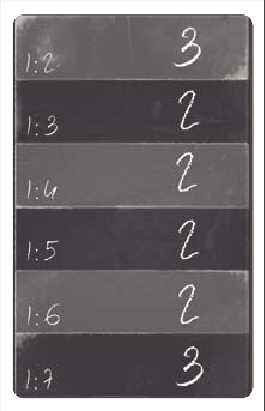 1:2 3
1:3 2
1:4 2
1:5 2
1:6 2
1:7 3